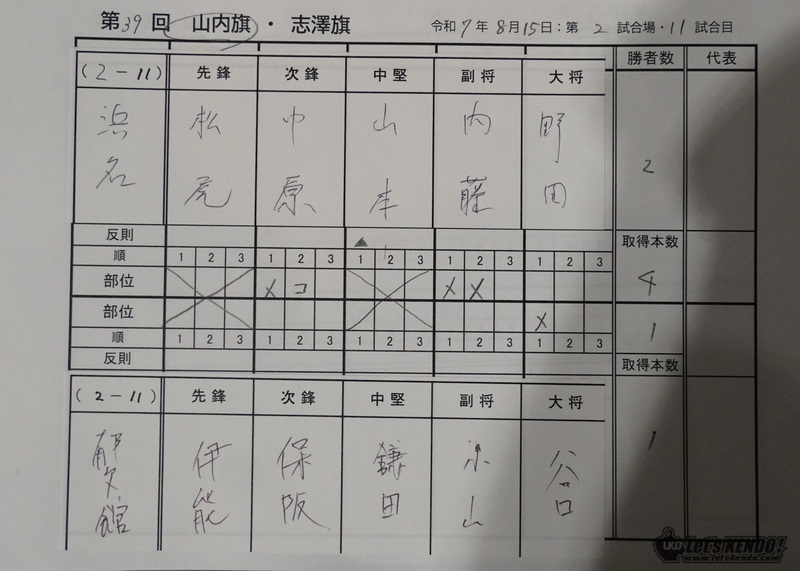 第39回 山内旗・志澤旗 令和7年8月15日：第2試合場・11試合目
(2-11) 先鋒 次鋒 中堅 副将 大将 勝者数 代表
浜名 松尾 中原 山本 内藤 野田 2
反則 ▲ 取得本数
順 1 2 3 1 2 3 1 2 3 1 2 3 1 2 3
部位 メ コ メ メ 4
部位 メ 1
順 1 2 3 1 2 3 1 2 3 1 2 3 1 2 3
反則 取得本数
(2-11) 先鋒 次鋒 中堅 副将 大将
郁文館 伊能 保阪 鎌田 小山 谷口 1
LET'S KENDO!
www.letskendo.com